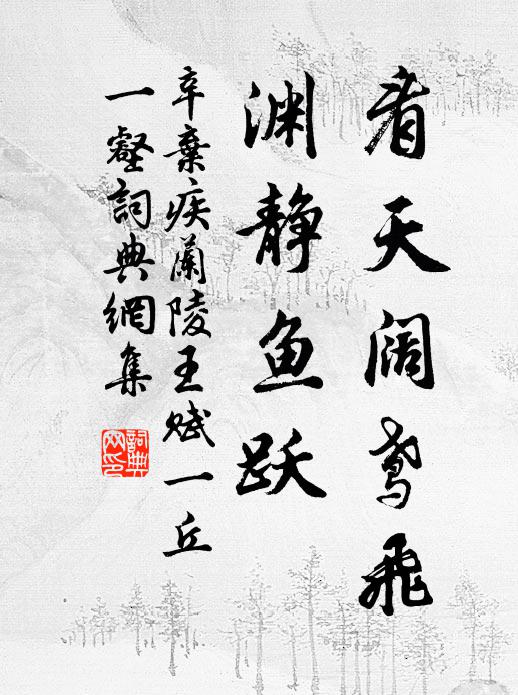 看天阔鸢飞
渊静鱼跃
辛棄疾蘭陵王賦一丘
一壑詞典網集
詞典
网印